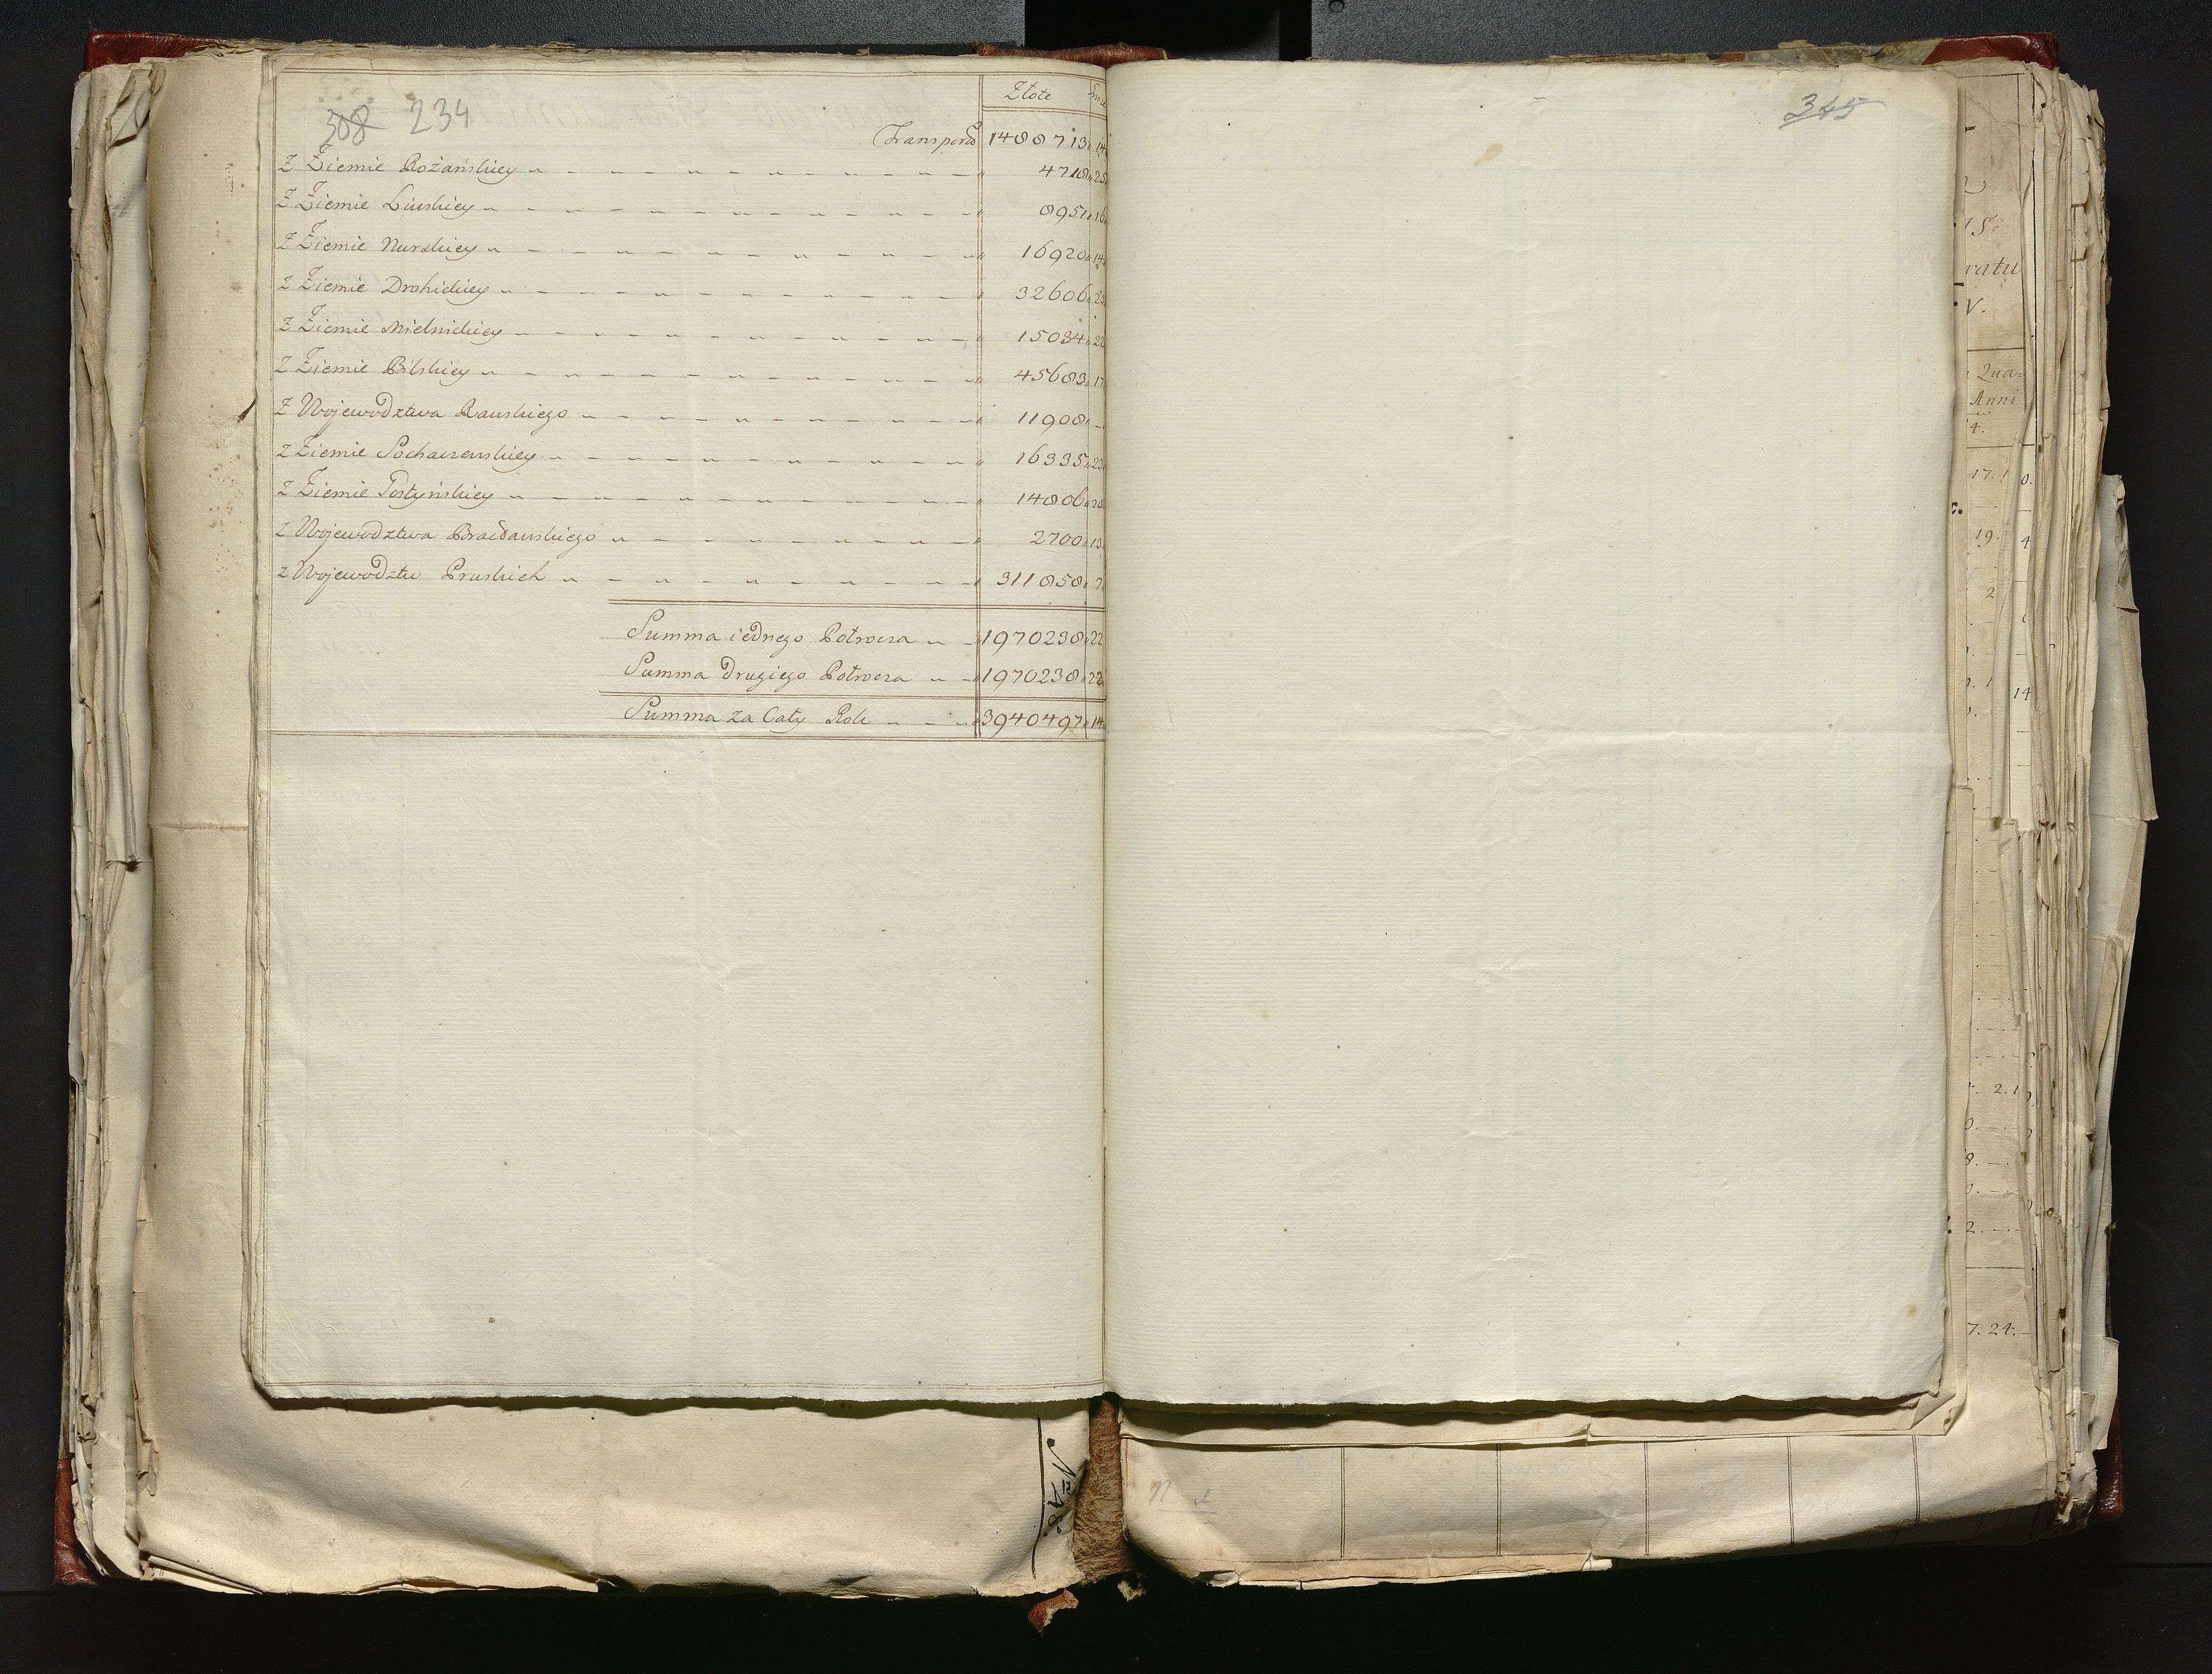 308 234
Złote
Transport 1488713 14
Z Ziemie Rożańskiey 4718 25
Z Ziemie Liwskiey 8951 16
Z Ziemie Nurskiey 16920 14
Z Ziemie Drohickiey 32606 23
Z Ziemie Mielnickiey 15034 22
Z Ziemie Bilskiey 45683 17
Z Wojewodztwa Rawskiego 11908 –
Z Ziemie Sochaczewskiey 16335 23
Z Ziemie Gostyńskiey 14806 28
Z Wojewodztwa Bracławskiego 2700 13
Z Wojewodztw Pruskich 311858 7
Summa iednego Półrocza 1970238 22
Summa drugiego Półrocza 1970238 22
Summa za Cały Rok 3940497 14
345
ratu
V.
Qua=
Anni
4.
17. 1
19.
4
2
14
2.
7. 24.